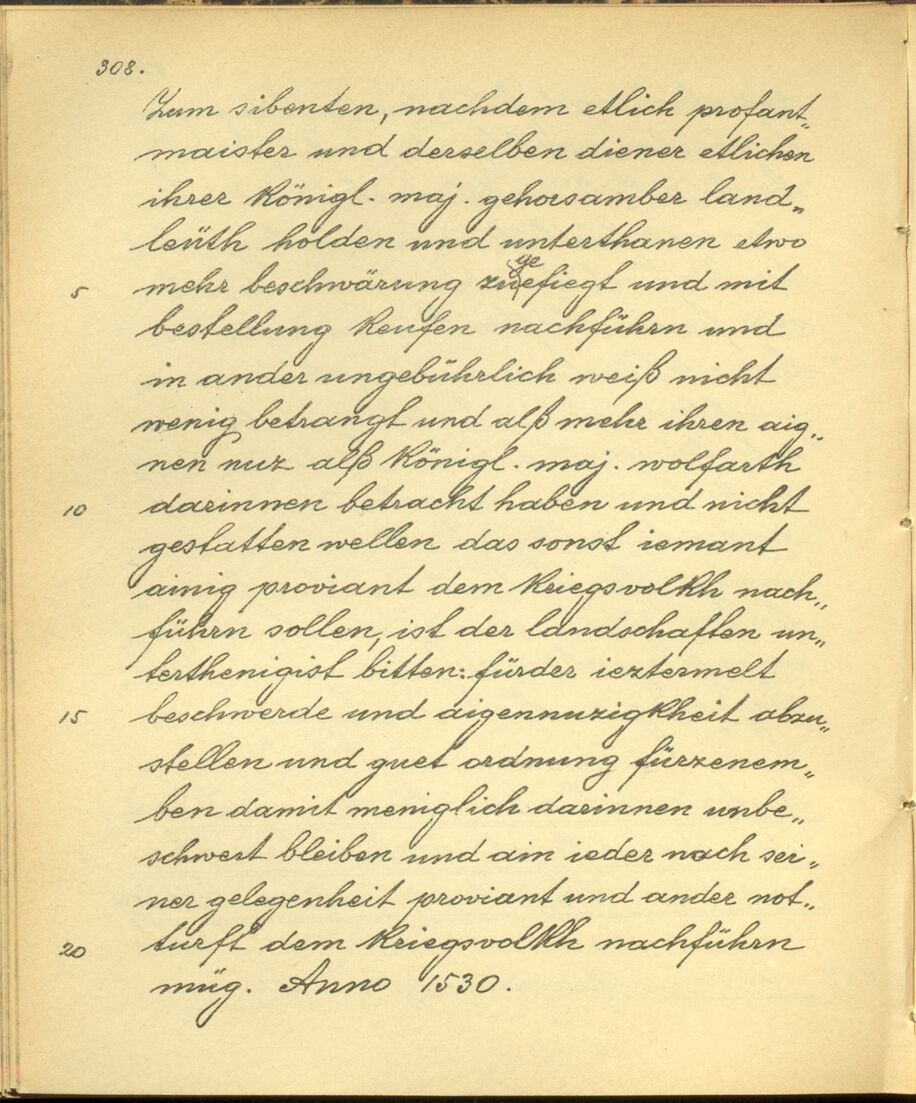 308.
Zum sibenten, nachdem etlich profant„
maister und derselben diener etlichen
ihrer königl. maj. gehorsamber land„
leüth holden und unterthanen etwo
5 mehr beschwärung zuegefiegt und mit
bestellung keufen nachführn und
in ander ungebührlich weiß nicht
wenig betrangt und alß mehr ihren aig„
nen nuz alß königl. maj. wolfarth
10 darinnen betracht haben und nicht
gestatten wellen das sonst iemant
ainig proviant dem kriegsvolkh nach„
führn sollen, ist der landschaften un„
terthenigist bitten: fürder ieztermelt
15 beschwerde und aigennuzigkheit abzu„
stellen und guet ordnung fürzenem„
ben damit meniglich darinnen unbe„
schwert bleiben und ain ieder nach sei„
ner gelegenheit proviant und ander not„
20 turft dem kriegsvolkh nachführn
müg. Anno 1530.